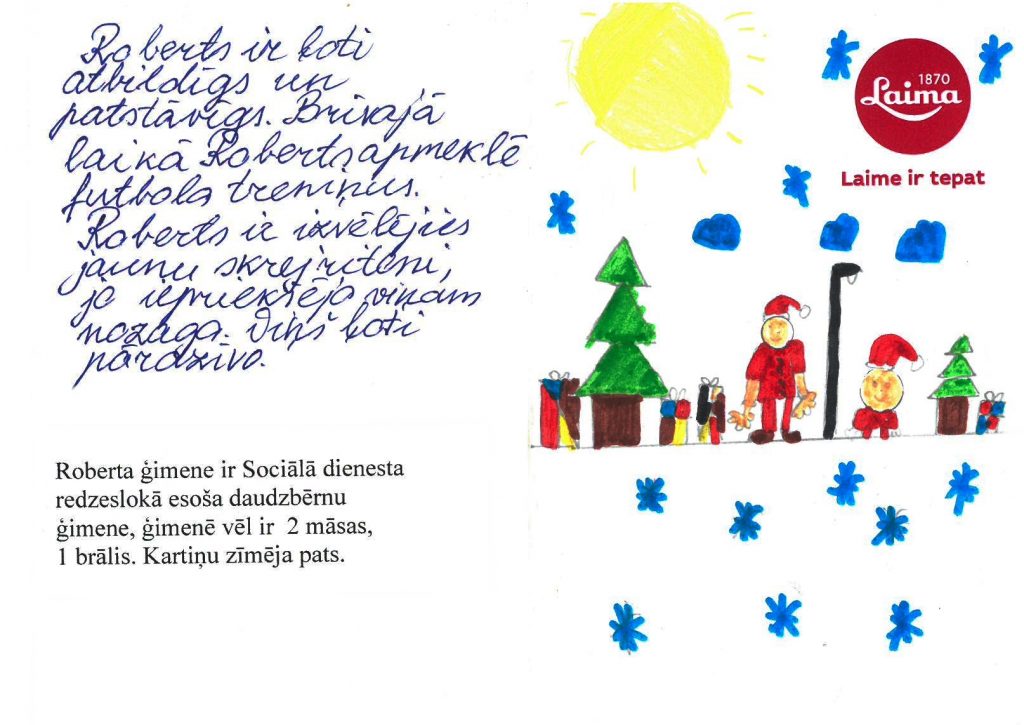 Roberts ir ļoti
atbildīgs un
patstāvīgs. Brīvajā
laikā Roberts apmeklē
futbola treniņus.
Roberts ir izvēlējies
jaunu skrejriteni,
jo iepriekšējo viņam
nozaga. Viņš ļoti
pārdzīvo.
Roberta ģimene ir Sociālā dienesta
redzeslokā esoša daudzbērnu
ģimene, ģimenē vēl ir 2 māsas,
1 brālis. Kartiņu zīmēja pats.
1870
Laima
Laime ir tepat